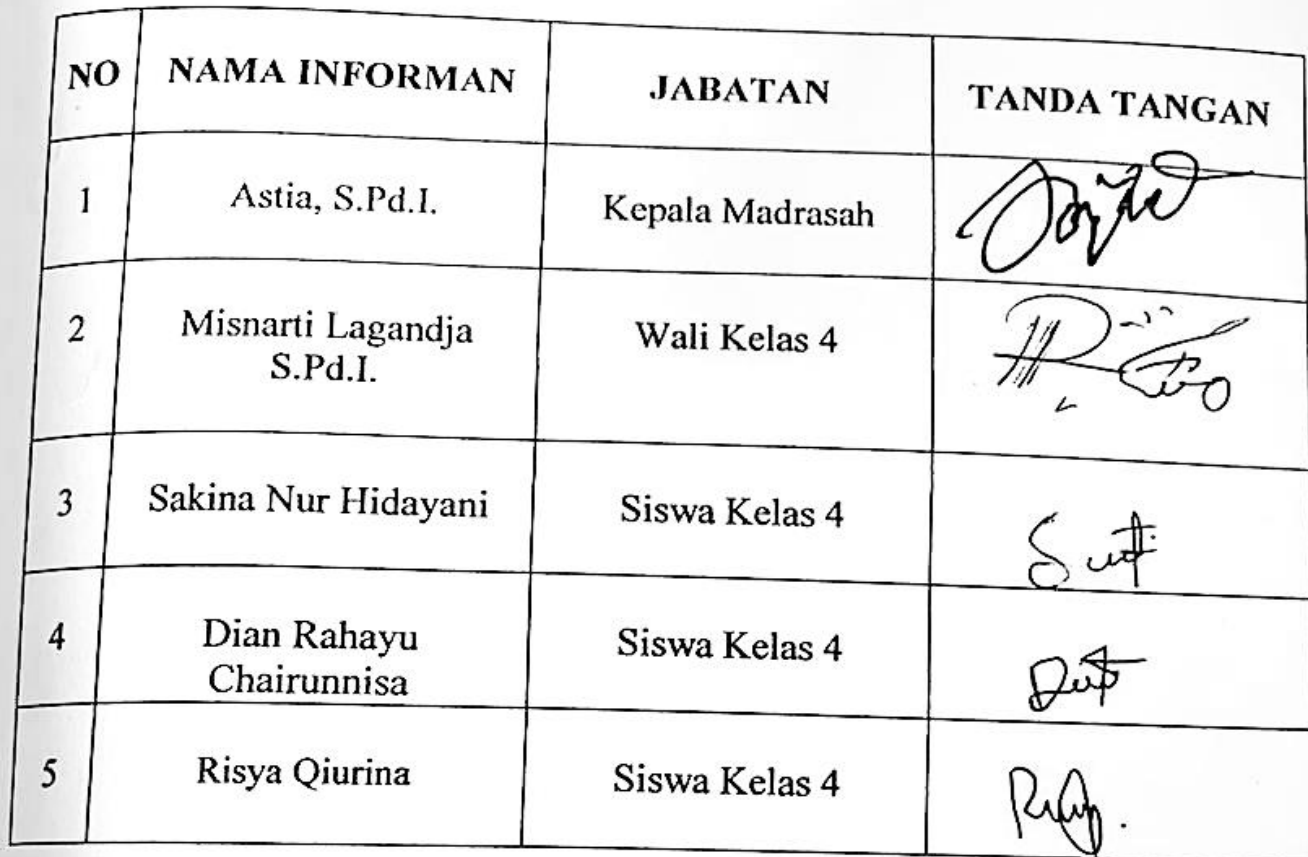 NO NAMA INFORMAN JABATAN TANDA TANGAN
1 Astia, S.Pd.I. Kepala Madrasah
2 Misnarti Lagandja Wali Kelas 4
S.Pd.I.
3 Sakina Nur Hidayani Siswa Kelas 4
4 Dian Rahayu Siswa Kelas 4
Chairunnisa
5 Risya Qiurina Siswa Kelas 4